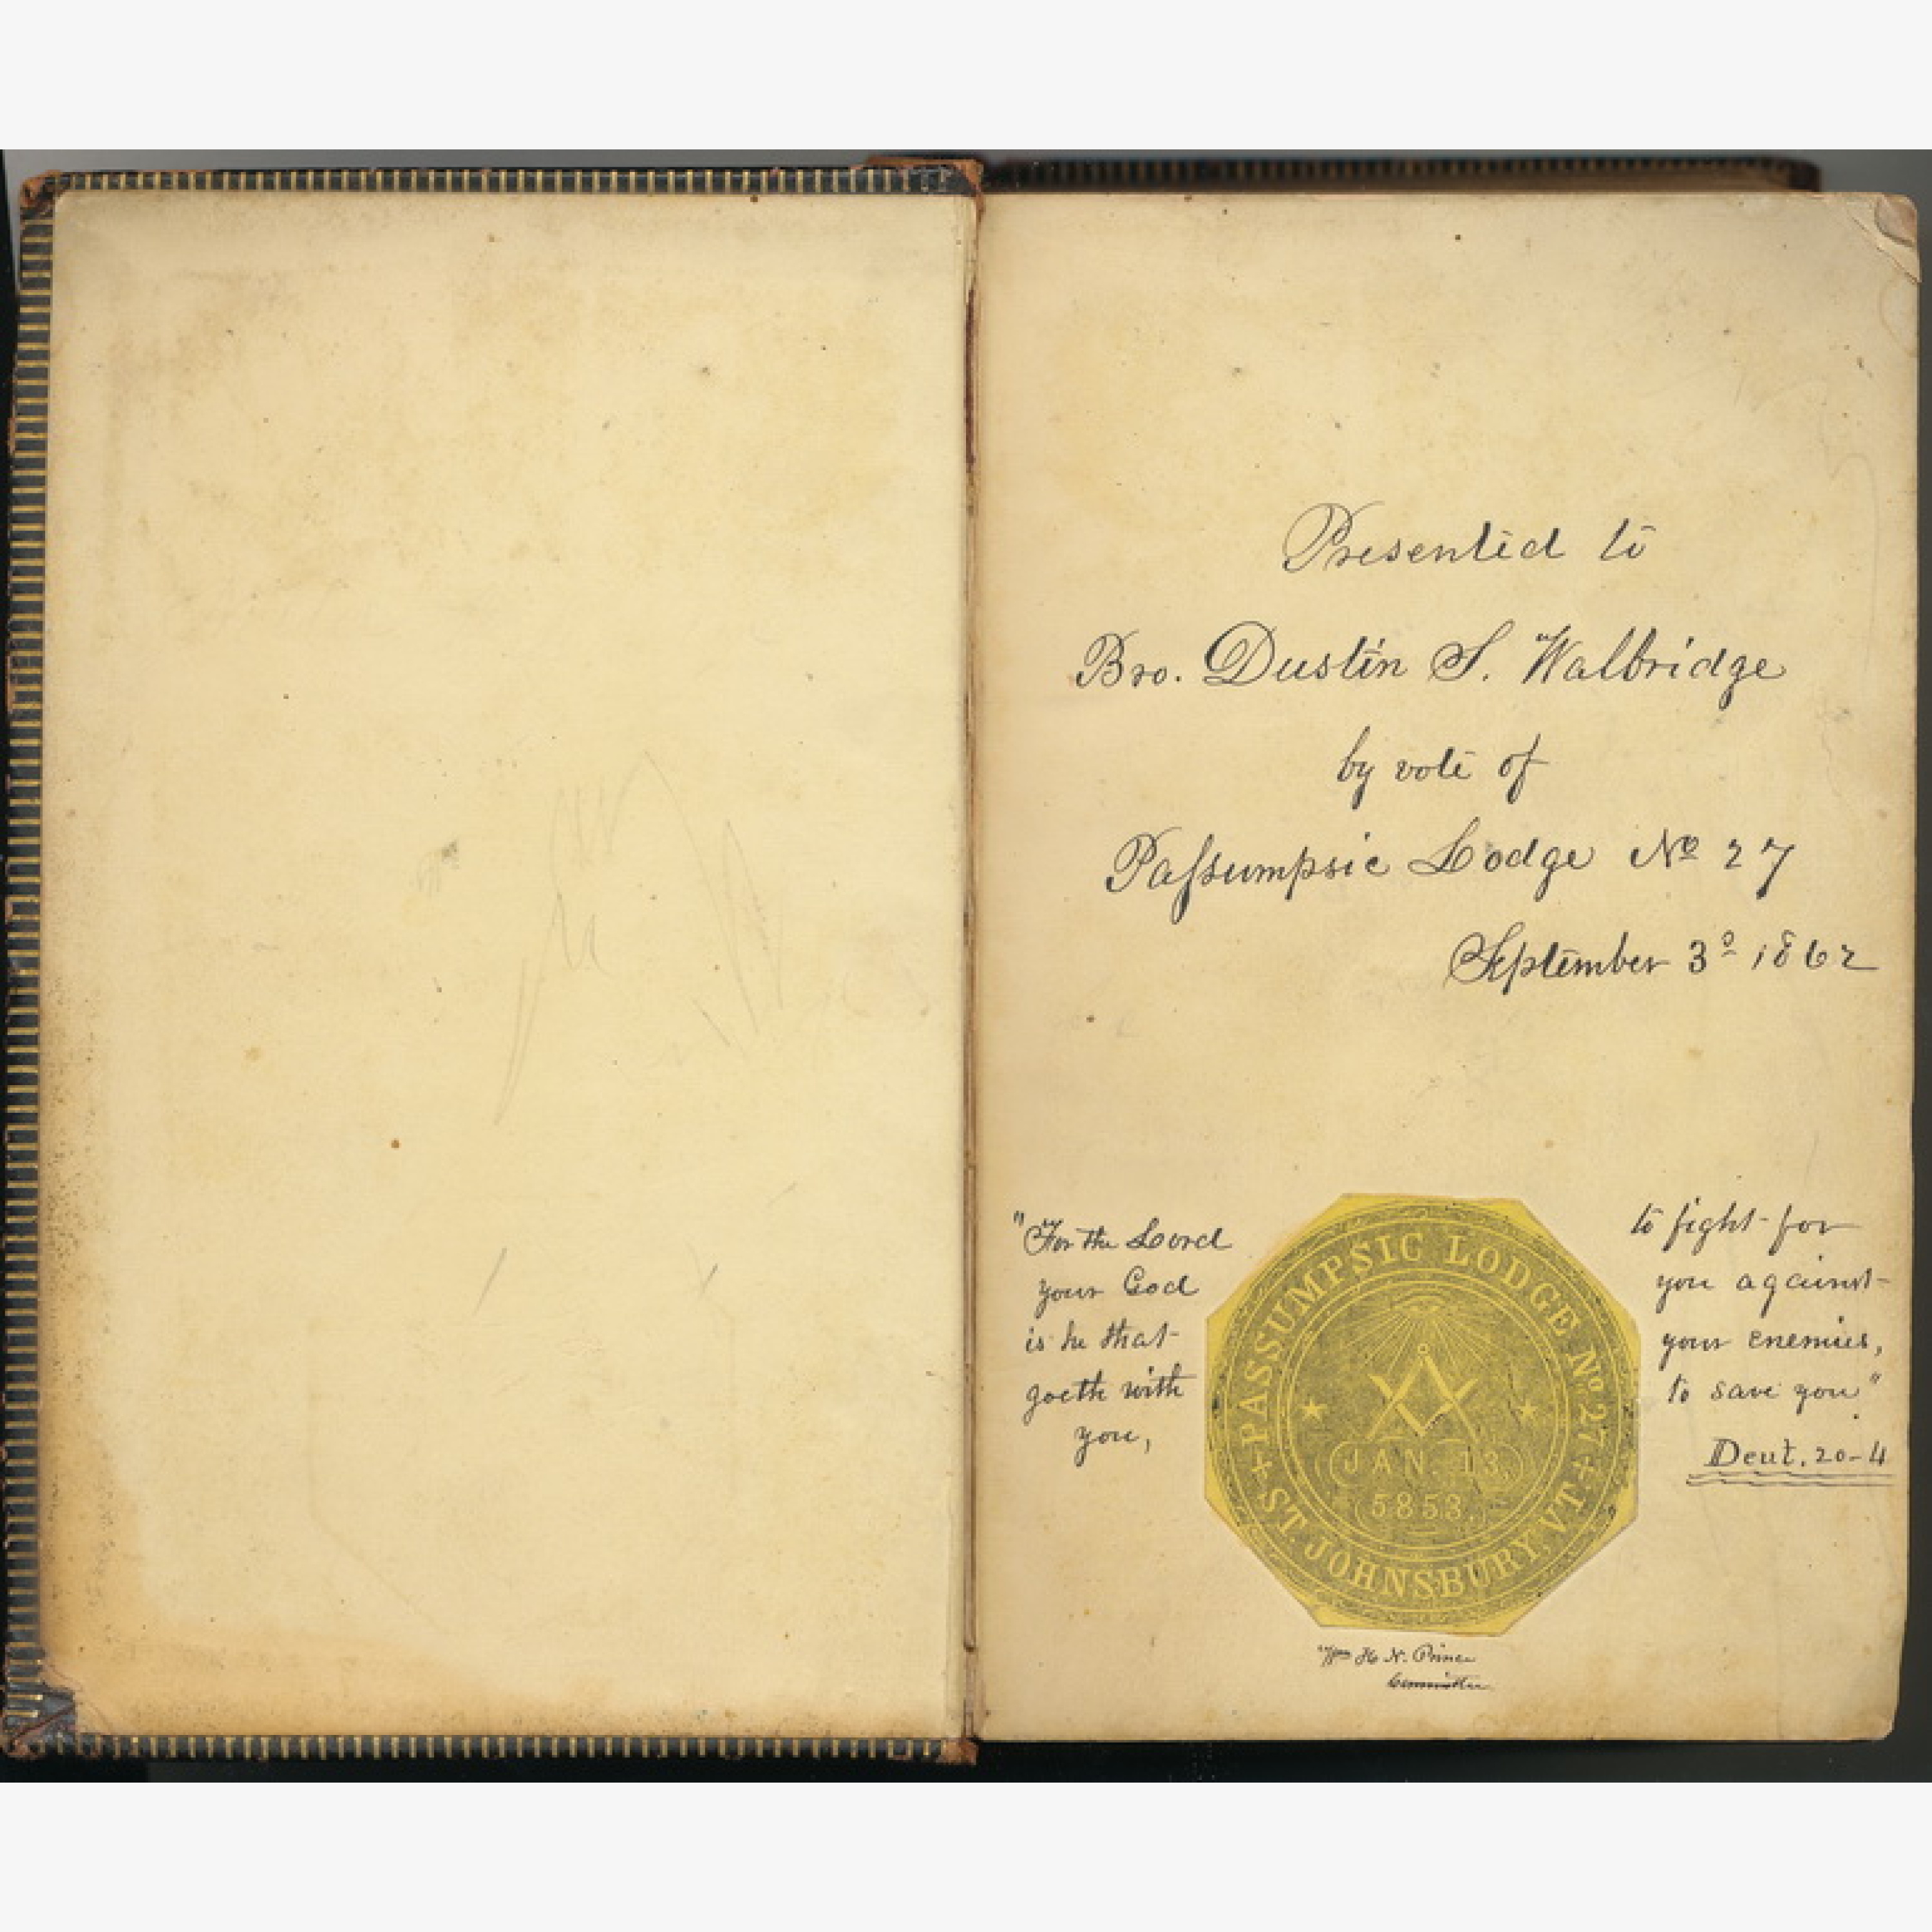 Presented to
Bro. Dustin S. Walbridge
by vote of
Paſsumpsic Lodge Nº 27
September 3º 1862
"For the Lord
your God
is he that
goeth with
you,
to fight for
you against
your enemies,
to save you"
Deut. 20-4
PASSUMPSIC LODGE Nº 27
JAN. 13,
5853.
ST. JOHNSBURY, VT.
Wm H. N. Prince
Committee